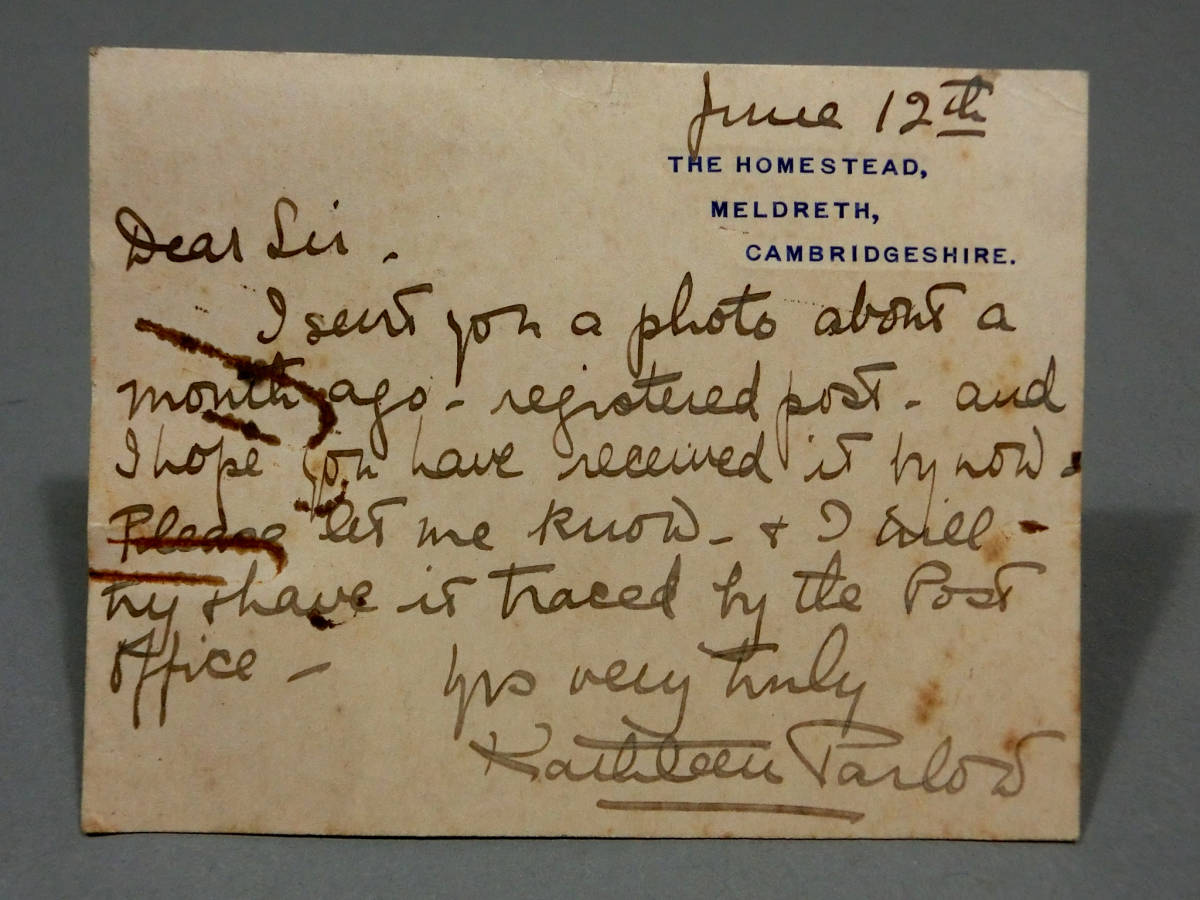 June 12th
THE HOMESTEAD,
MELDRETH,
CAMBRIDGESHIRE.
Dear Sir.
I sent you a photo about a
month ago - registered post - and
I hope you have received it by now.
Please let me know - & I will -
try & have it traced by the Post
Office -
Yrs very truly
Kathleen Parlow